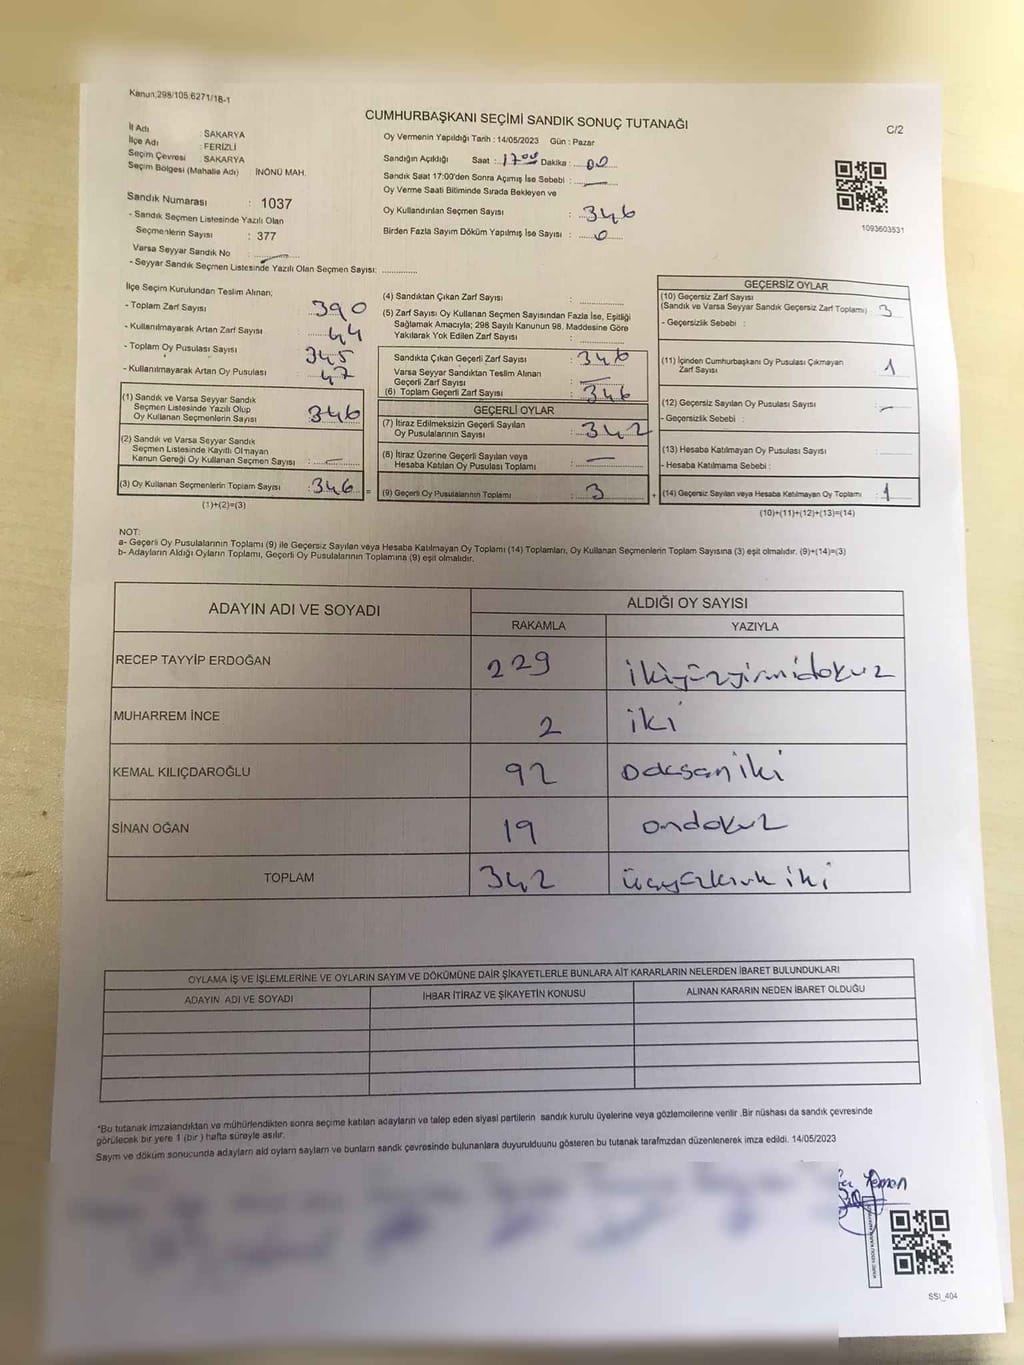 Kanun;298/105,6271/18-1
CUMHURBAŞKANI SEÇİMİ SANDIK SONUÇ TUTANAĞI
C/2
İl Adı : SAKARYA
İlçe Adı : FERİZLİ
Seçim Çevresi : SAKARYA
Seçim Bölgesi (Mahalle Adı) İNÖNÜ MAH.
Sandık Numarası : 1037
- Sandık Seçmen Listesinde Yazılı Olan
Seçmenlerin Sayısı : 377
Varsa Seyyar Sandık No :
- Seyyar Sandık Seçmen Listesinde Yazılı Olan Seçmen Sayısı:
Oy Vermenin Yapıldığı Tarih : 14/05/2023 Gün : Pazar
Sandığın Açıldığı Saat : 17⁰⁰ Dakika : 00
Sandık Saat 17:00'den Sonra Açımış İse Sebebi : —
Oy Verme Saati Bitiminde Sırada Bekleyen ve
Oy Kullandırılan Seçmen Sayısı : 346
Birden Fazla Sayım Döküm Yapılmış İse Sayısı : 0
1093603531
İlçe Seçim Kurulundan Teslim Alınan;
- Toplam Zarf Sayısı 390
- Kullanılmayarak Artan Zarf Sayısı 44
- Toplam Oy Pusulası Sayısı 345
- Kullanılmayarak Artan Oy Pusulası 47
(1) Sandık ve Varsa Seyyar Sandık
Seçmen Listesinde Yazılı Olup
Oy Kullanan Seçmenlerin Sayısı 346
(2) Sandık ve Varsa Seyyar Sandık
Seçmen Listesinde Kayıtlı Olmayan
Kanun Gereği Oy Kullanan Seçmen Sayısı : —
(3) Oy Kullanan Seçmenlerin Toplam Sayısı : 346
(1)+(2)=(3)
=
(4) Sandıktan Çıkan Zarf Sayısı :
(5) Zarf Sayısı Oy Kullanan Seçmen Sayısından Fazla İse, Eşitliği
Sağlamak Amacıyla; 298 Sayılı Kanunun 98. Maddesine Göre
Yakılarak Yok Edilen Zarf Sayısı :
Sandıkta Çıkan Geçerli Zarf Sayısı : 346
Varsa Seyyar Sandıktan Teslim Alınan
Geçerli Zarf Sayısı : —
(6) Toplam Geçerli Zarf Sayısı : 346
GEÇERLİ OYLAR
(7) İtiraz Edilmeksizin Geçerli Sayılan
Oy Pusulalarının Sayısı : 342
(8) İtiraz Üzerine Geçerli Sayılan veya
Hesaba Katılan Oy Pusulası Toplamı : —
(9) Geçerli Oy Pusulalarının Toplamı : 3
+
GEÇERSİZ OYLAR
(10) Geçersiz Zarf Sayısı
(Sandık ve Varsa Seyyar Sandık Geçersiz Zarf Toplamı) : 3
- Geçersizlik Sebebi :
(11) İçinden Cumhurbaşkanı Oy Pusulası Çıkmayan
Zarf Sayısı : 1
(12) Geçersiz Sayılan Oy Pusulası Sayısı : —
- Geçersizlik Sebebi :
(13) Hesaba Katılmayan Oy Pusulası Sayısı :
- Hesaba Katılmama Sebebi :
(14) Geçersiz Sayılan veya Hesaba Katılmayan Oy Toplamı : 1
(10)+(11)+(12)+(13)=(14)
NOT:
a- Geçerli Oy Pusulalarının Toplamı (9) ile Geçersiz Sayılan veya Hesaba Katılmayan Oy Toplamı (14) Toplamları, Oy Kullanan Seçmenlerin Toplam Sayısına (3) eşit olmalıdır. (9)+(14)=(3)
b- Adayların Aldığı Oyların Toplamı, Geçerli Oy Pusulalarının Toplamına (9) eşit olmalıdır.
ADAYIN ADI VE SOYADI
ALDIĞI OY SAYISI
RAKAMLA YAZIYLA
RECEP TAYYİP ERDOĞAN 229 ikiyüzyirmidokuz
MUHARREM İNCE 2 iki
KEMAL KILIÇDAROĞLU 92 Doksaniki
SİNAN OĞAN 19 ondokuz
TOPLAM 342 üçyüzkırk iki
OYLAMA İŞ VE İŞLEMLERİNE VE OYLARIN SAYIM VE DÖKÜMÜNE DAİR ŞİKAYETLERLE BUNLARA AİT KARARLARIN NELERDEN İBARET BULUNDUKLARI
ADAYIN ADI VE SOYADI İHBAR İTİRAZ VE ŞİKAYETİN KONUSU ALINAN KARARIN NEDEN İBARET OLDUĞU
*Bu tutanak imzalandıktan ve mühürlendikten sonra seçime katılan adayların ve talep eden siyasi partilerin sandık kurulu üyelerine veya gözlemcilerine verilir .Bir nüshası da sandık çevresinde
görülecek bir yere 1 (bir ) hafta süreyle asılır.
Sayım ve döküm sonucunda adayların ald oyların sayıların ve bunların sandk çevresinde bulunanlara duyurulduunu gösteren bu tutanak tarafmzdan düzenlenerek imza edildi. 14/05/2023
SSI_404